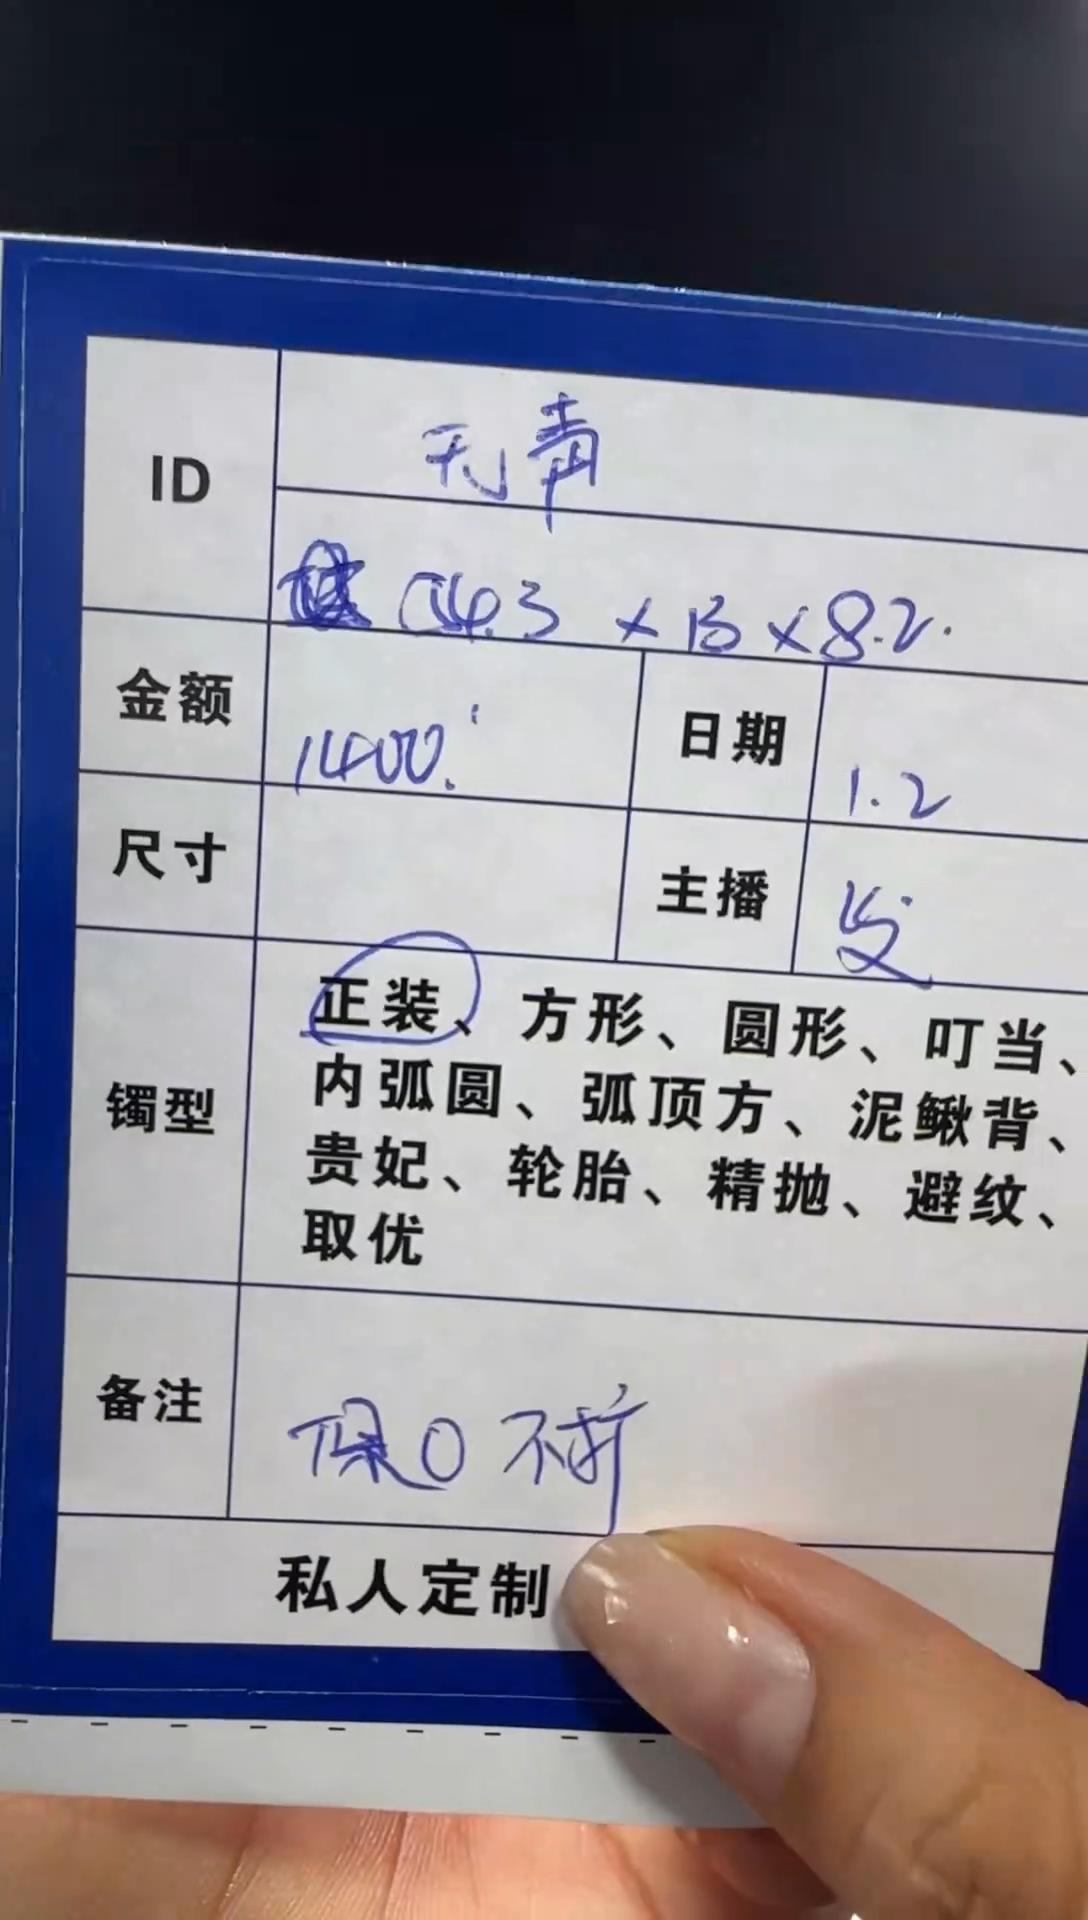 ID
无声
54.3 × 13 × 8.2.
金额
1400.
日期
1.2
尺寸
主播
镯型
正装、方形、圆形、叮当、
内弧圆、弧顶方、泥鳅背、
贵妃、轮胎、精抛、避纹、
取优
备注
保0 不扩
私人定制